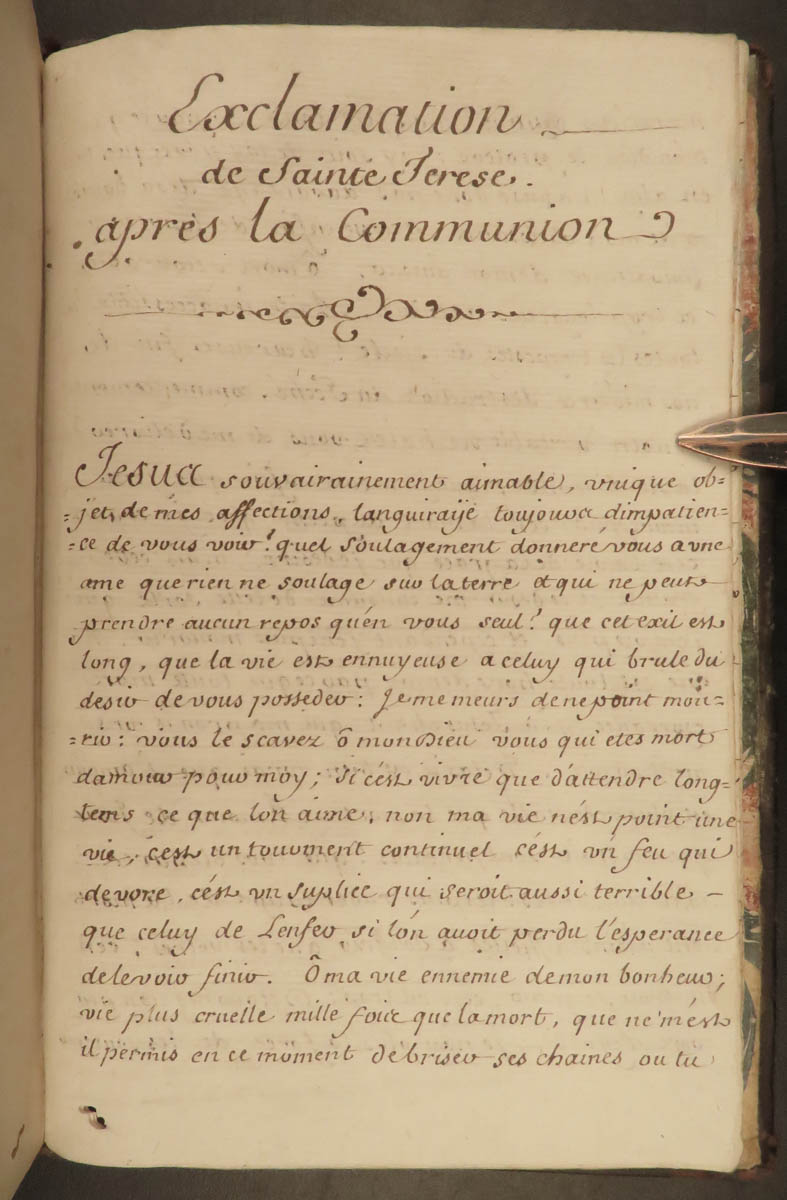 Exclamation
de Sainte Terese.
après la Communion
Jesus souvairainement aimable, vnique ob=
=jet, de mes affections, languiraÿe toujours dimpatien=
=ce de vous voir? quel soulagement donneré vous a vne
ame que rien ne soulage sur la terre et qui ne peut
prendre aucun repos qu'en vous seul? que cet exil est
long, que la vie est ennuyeuse a celuy qui brule du
desir de vous posseder: Je me meurs de ne point mou=
=rir: vous le scavez ô mon Dieu vous qui etes mort
damour pour moy; Si c'est vivre que d'attendre long=
tems ce que lon aime, non ma vie n'est point une
vie, c'est un tourment continuel c'est vn feu qui
devore, c'est vn suplice qui seroit aussi terrible –
que celuy de Lenfer si l'on avoit perdu l'esperance
de le voir finir. Ô ma vie ennemie de mon bonheur;
vie plus cruelle mille fois que la mort, que ne m'est
il permis en ce moment de briser ses chaines ou tu